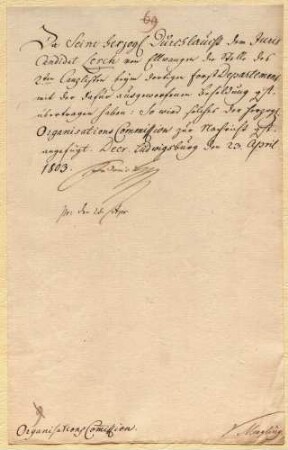 69
Da Seine Herzogl. Durchlaucht dem Juris
Candidat Lerch von Ellwangen die Stelle des
2ten Canzlisten beym dortigen Forst Departement
mit der dafür ausgeworfenen Besoldung gst.
übertragen haben; So wird solches der Herzogl.
Organisations Commission zur Nachricht gst.
angefügt. Decr. Ludwigsburg den 23. April
1803.
den 26. Apr
Organisations Commission.